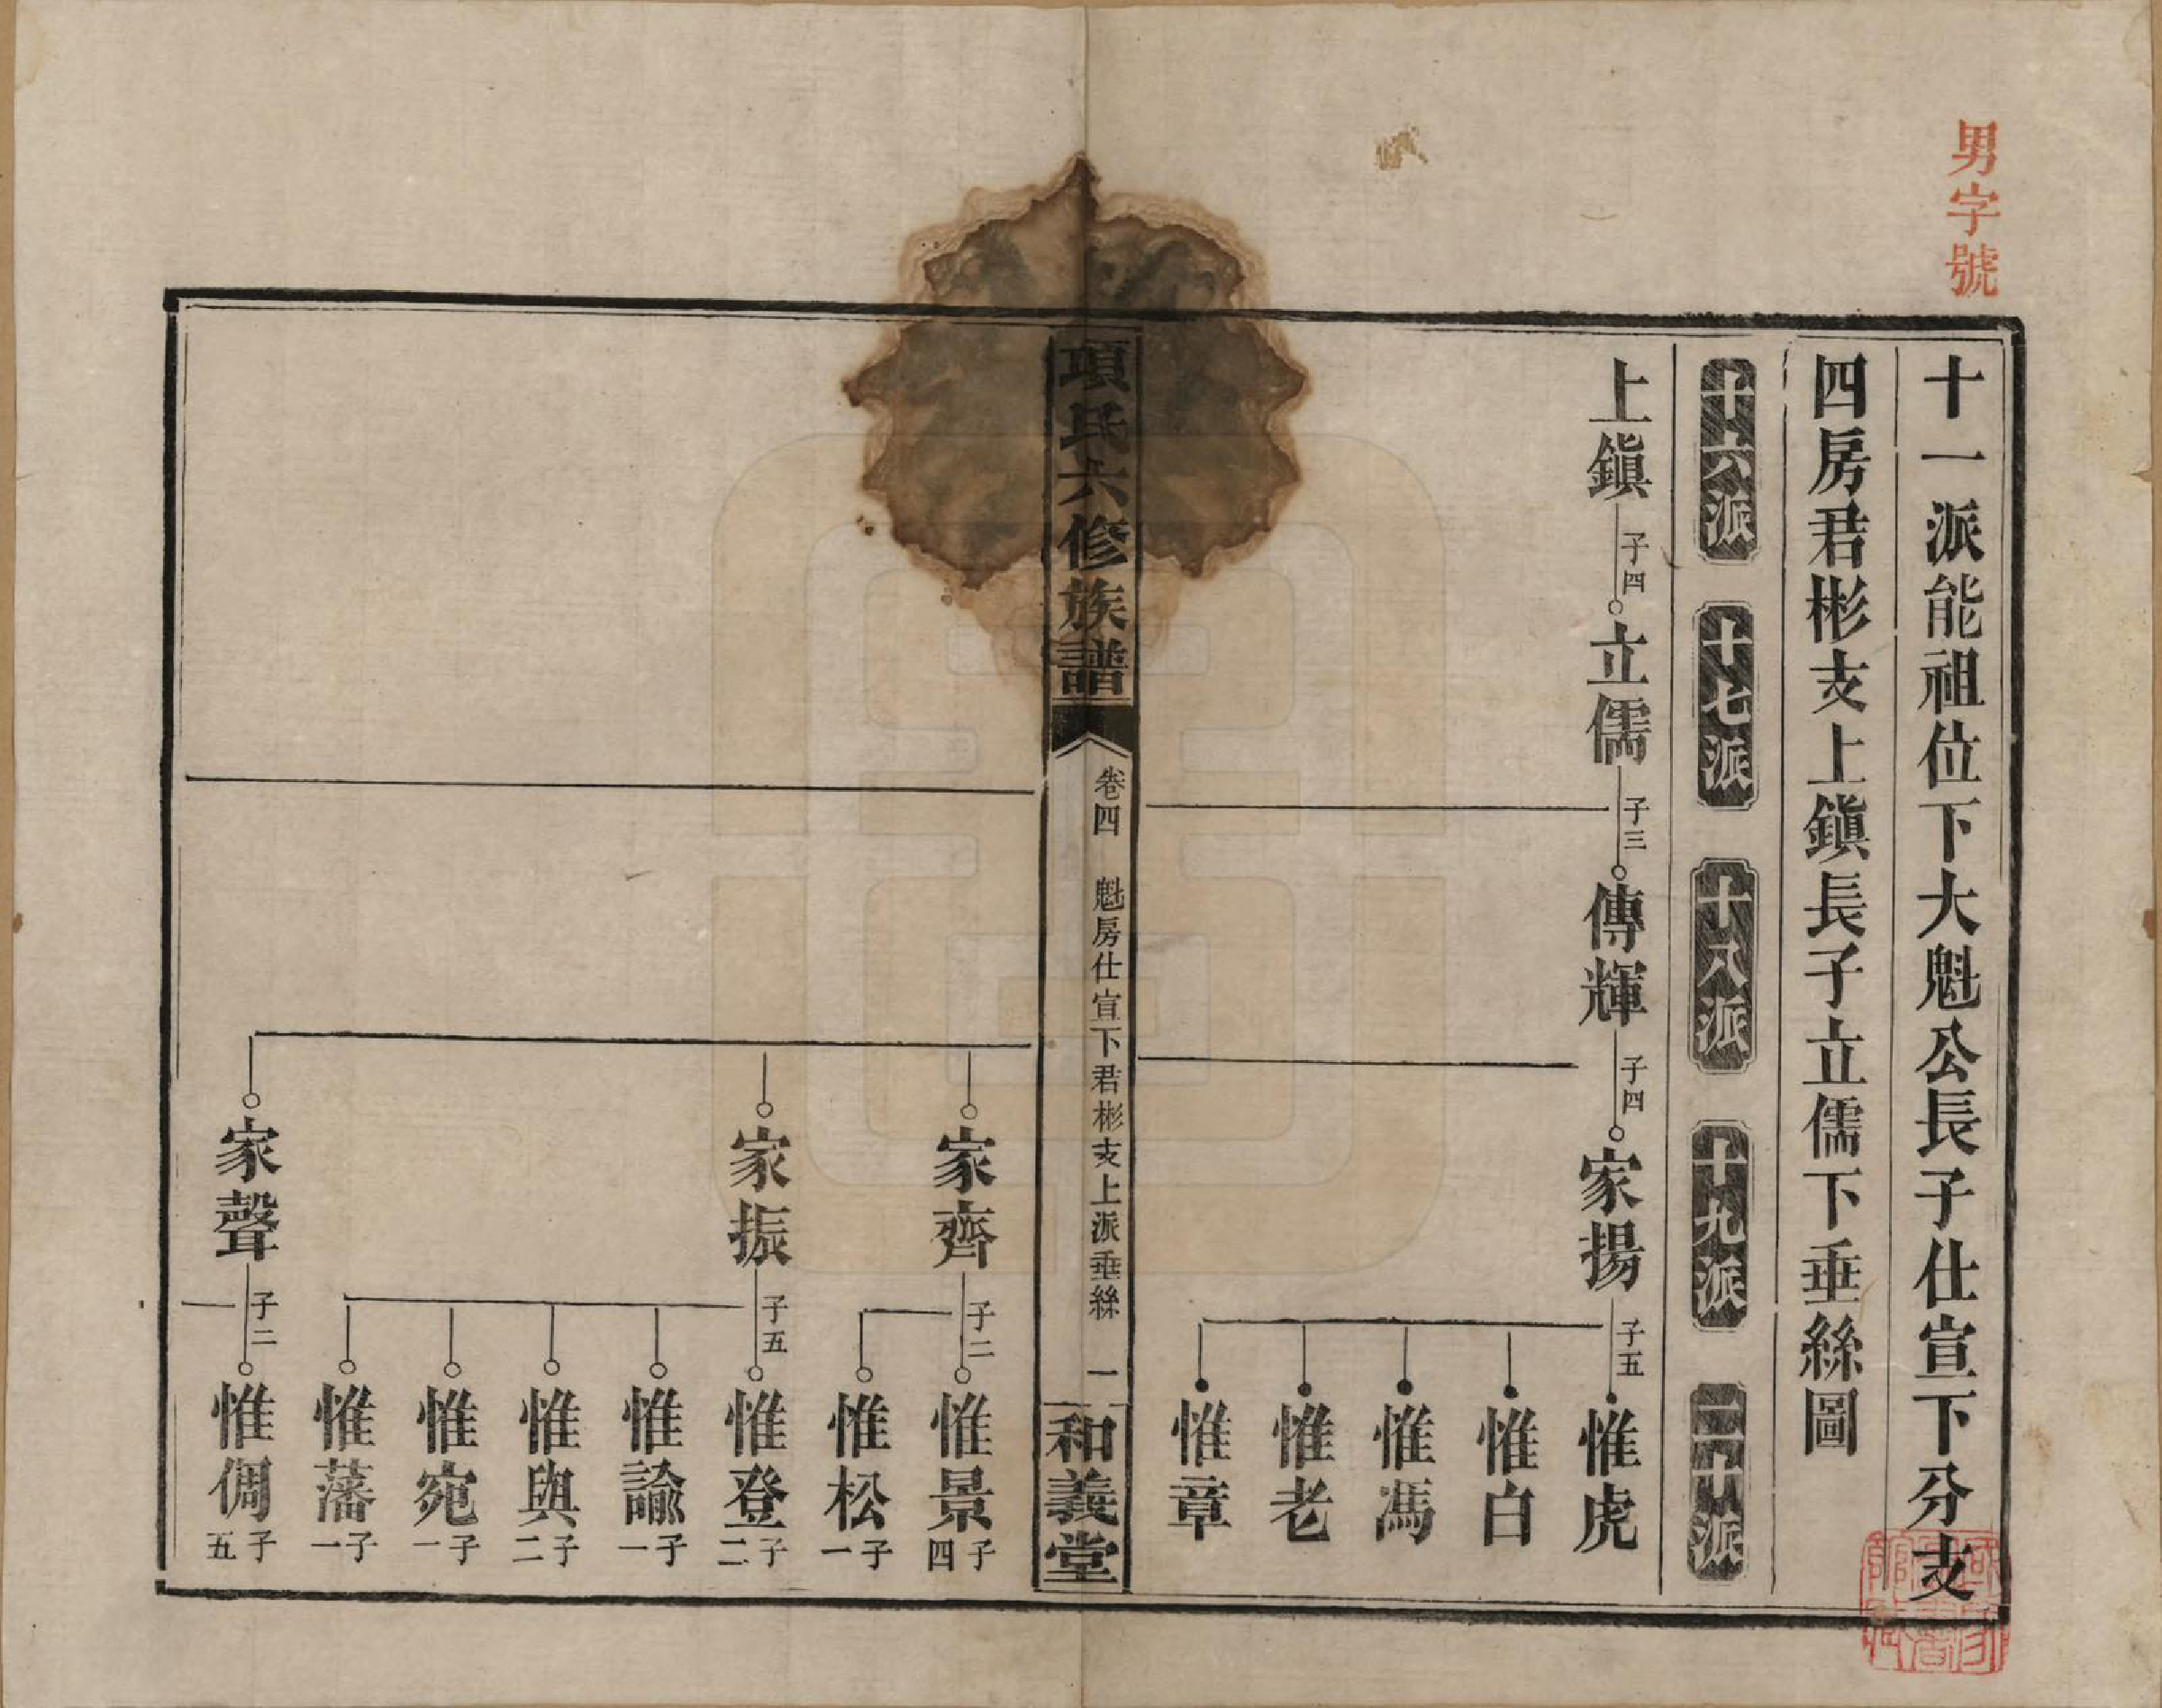 男字號
十一派能祖位下大魁公長子仕宣下分支
四房君彬支上鎭長子立儒下垂絲圖
十六派 十七派 十八派 十九派 二十派
上鎭 子四 立儒 子三 傳輝 子四 家揚 子五 惟虎
惟白
惟馮
惟老
惟章
項氏六修族譜 卷四 魁房仕宣下君彬支上派垂絲 一 和義堂
家齊 子二 惟景 子四
惟松 子一
家振 子五 惟登 子二
惟諭 子一
惟與 子二
惟宛 子一
惟藩 子一
家聲 子二 惟倜 子五